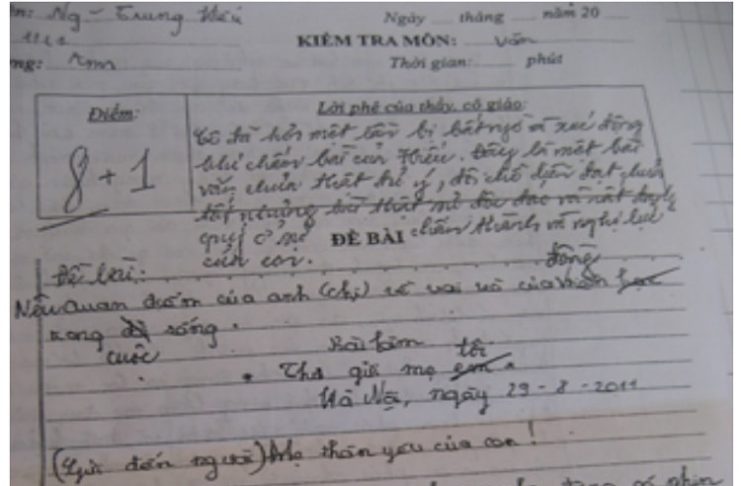 ên: Ng - Trung Hiếu Ngày tháng năm 20
KIỂM TRA MÔN: Văn
Thời gian: phút
Điểm:
8 + 1
Lời phê của thầy, cô giáo:
Cô đã hơn một lần bị bất ngờ và xúc động
khi chấm bài của Hiếu. Đây là một bài
văn chưa thật đủ ý, đôi chỗ diễn đạt chưa
tốt nhưng bài thật mới độc đáo và rất đáng
quý ở sự chân thành và nghị lực
của con.
ĐỀ BÀI
Đề bài:
Nêu quan điểm của anh (chị) về vai trò của đồng
trong cuộc sống.
Bài làm
Thư gửi mẹ tôi
Hà Nội, ngày 29 - 8 - 2011
(Gửi đến người) Mẹ thân yêu của con!